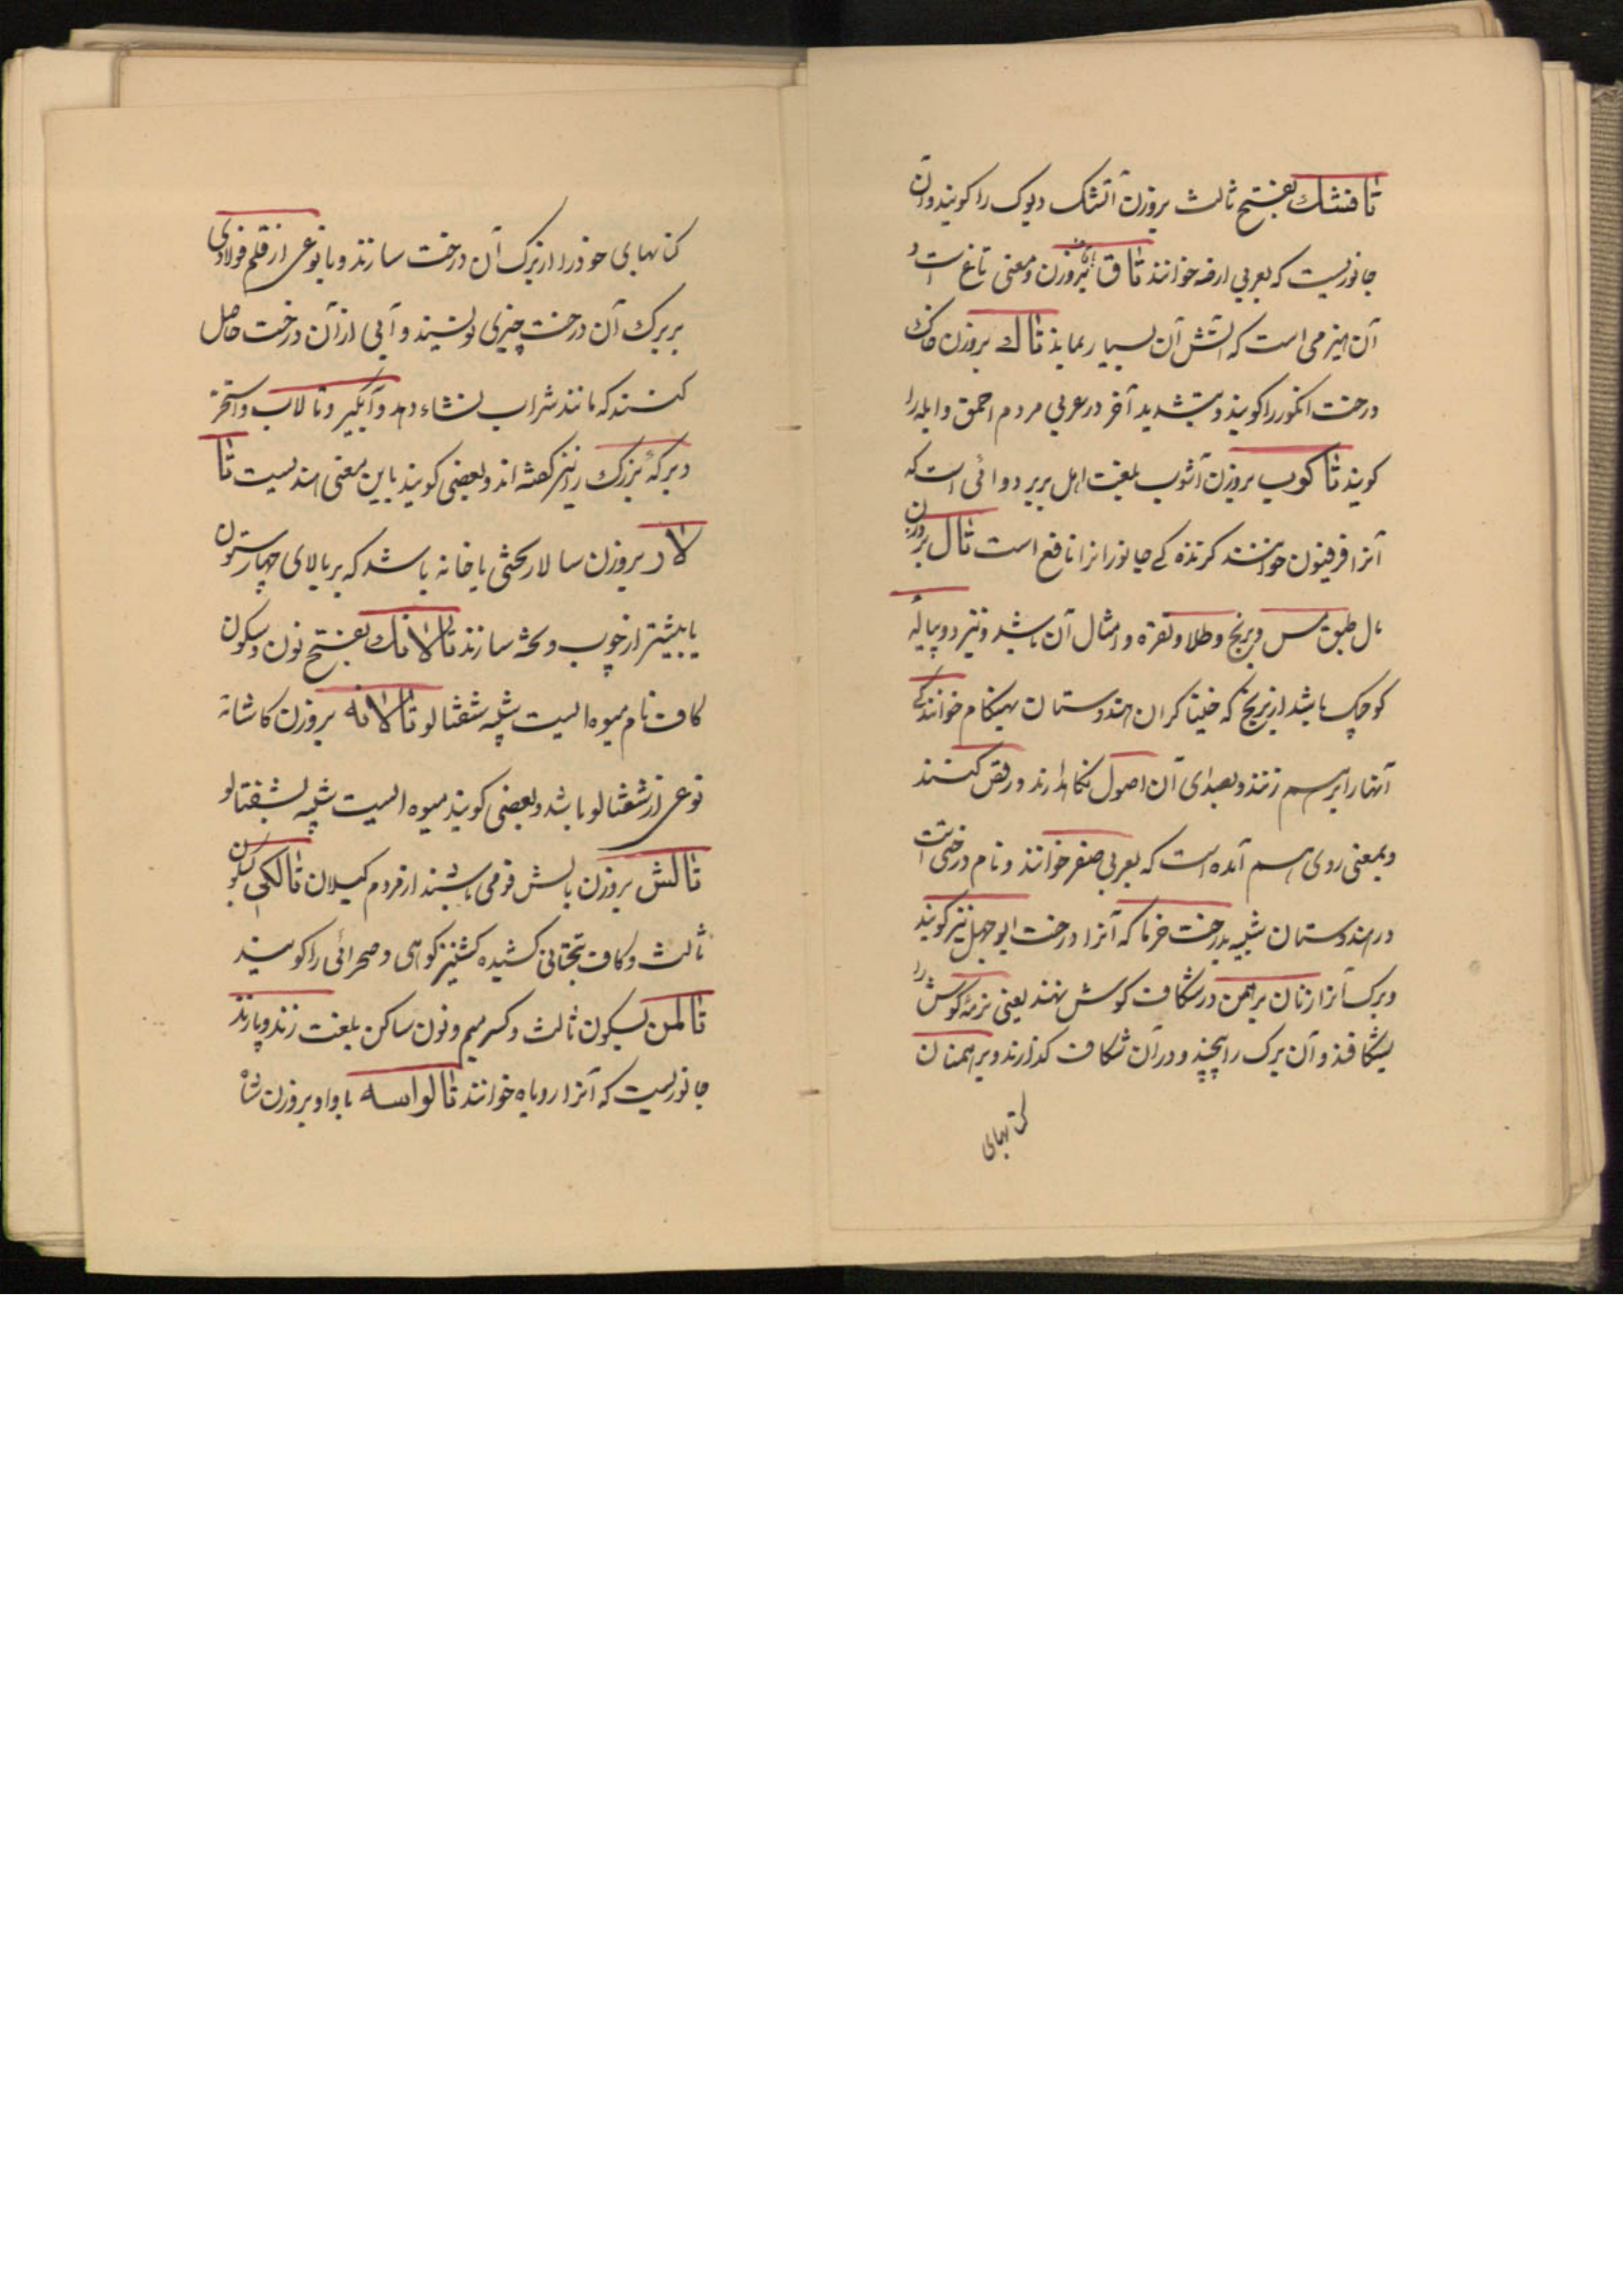 تافشك بفتح ثالث بروزن آتشک دیوک را کویند و آن
جانوریست که بعربی ارضه خوانند تاق بروزن و معنی تاغ است و
آن هیزمی است که آتش آن بسیار بماند تاك بروزن خاک
درخت انکور را کویند و بتشدید آخر در عربی مردم احمق و ابله را
کویند تاکوب بروزن آشوب بلغت اهل بربر دوائی است که
آنرا فرفیون خوانند کزنده کی جانورانرا نافع است تال بروزن
مال طبق مس و برنج و طلا و نقره و امثال آن باشد و نیز دو پیاله
کوچک باشد از برنج که خنیاکران هندوستان بهنکام خوانندکی
آنها را بر هم زنند و بصدای آن اصول نکاهدارند و رقص کنند
و بمعنی روی هم آمده است که بعربی صفر خوانند و نام درختی است
در هندوستان شبیه بدرخت خرما که آنرا درخت ابوجهل نیز کویند
و برک آنرا زنان برهمن در شکاف کوش نهند یعنی نرمهٔ کوش را
بشکافند و آن برک را پیچند و در آن شکاف کذارند و برهمنان
کتابهای
کتابهای خود را از برک آن درخت سازند و با نوعی از قلم فولادی
بر برک آن درخت چیزی نویسند و آبی از آن درخت حاصل
کنند که مانند شراب نشاء دهد و آبکیر و تالاب و استخر
و برکهٔ بزرک را نیز کفته اند و بعضی کویند باین معنی هندیست تا
لار بروزن سالار تختی یا خانه باشد که بر بالای چهار ستون
یا بیشتر از چوب و تخته سازند تالانك بفتح نون و سکون
کاف نام میوه ایست شبیه شفتالو تالانه بروزن کاشانه
نوعی از شفتالو باشد و بعضی کویند میوه ایست شبیه بشفتالو
تالش بروزن بالش قومی باشند از مردم کیلان تالکی بسکون
ثالث و کاف بتحتانی کشیده کشنیز کوهی و صحرائی را کویند
تالمن بسکون ثالث و کسر میم و نون ساکن بلغت زند و پازند
جانوریست که آنرا روباه خوانند تالواسه با واو بروزن شا